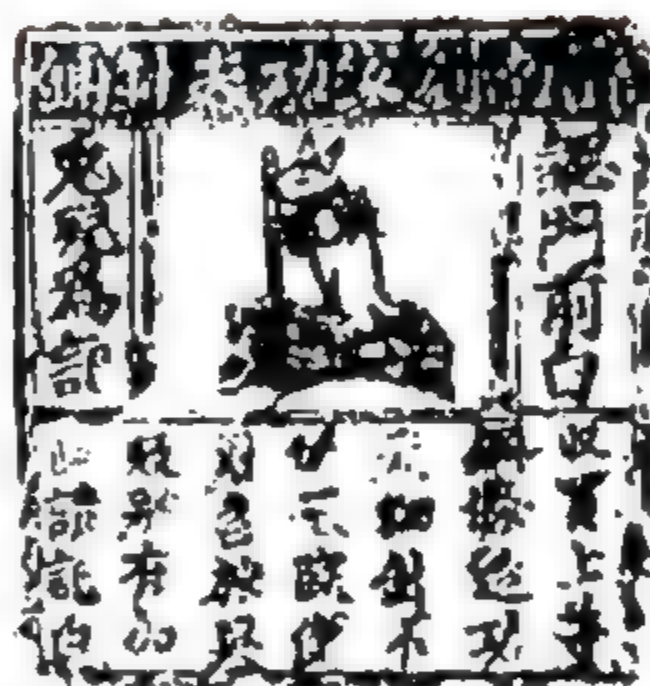 濟南劉家功夫針鋪
認門前白
兔兒為記
收買上等
鋼條造功
夫細針不
院使
用
販別有加
饒請記白